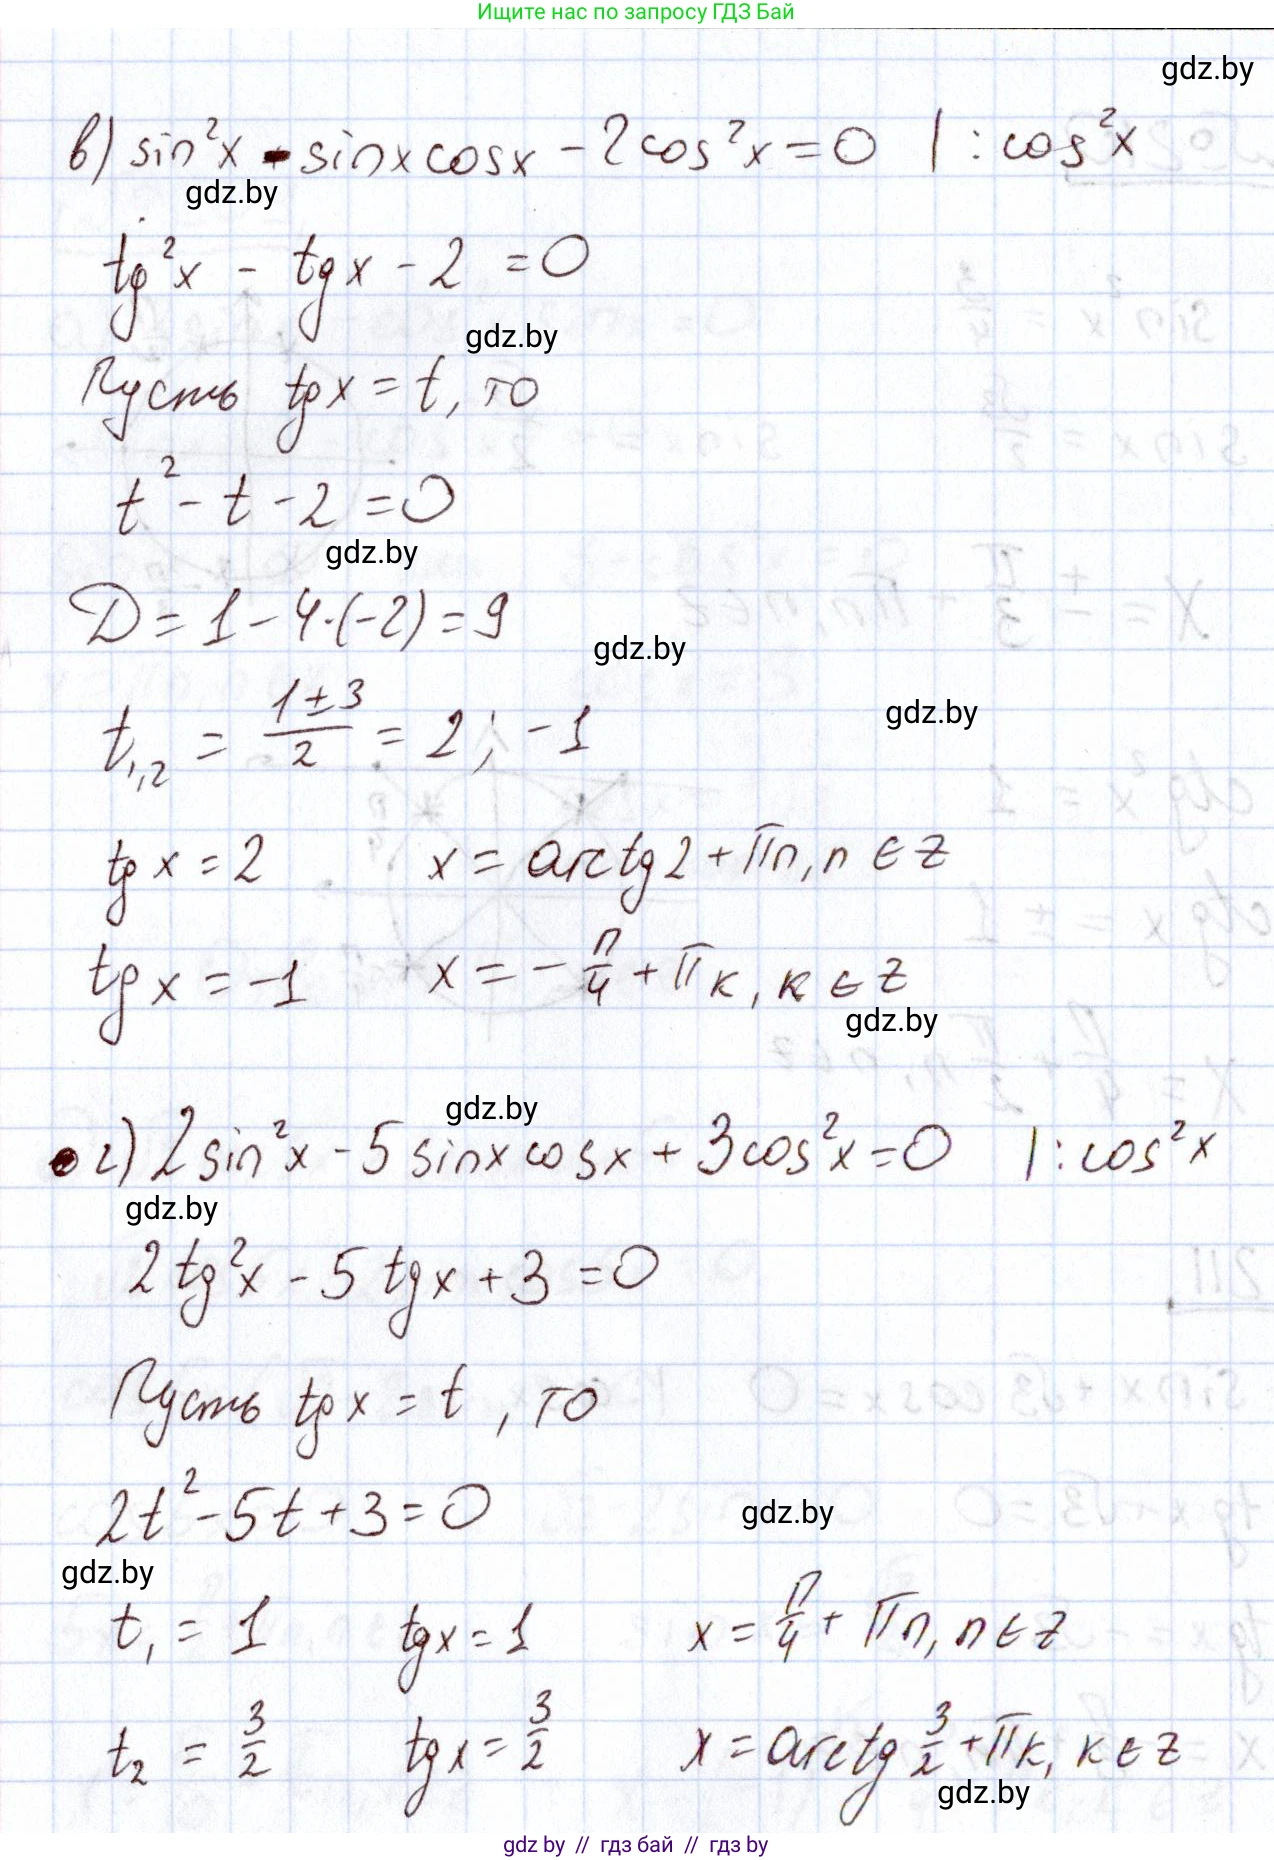 Ищите нас по запросу ГДЗ Бай
gdz.by
в) sin²x - sinx cosx - 2cos²x = 0 | : cos²x
gdz.by
tg²x - tgx - 2 = 0
gdz.by
Пусть tgx = t, то
t² - t - 2 = 0
gdz.by
D = 1 - 4·(-2) = 9
gdz.by
gdz.by
t₁,₂ = (1±3)/2 = 2; -1
tgx = 2 x = arctg2 + πn, n ∈ Z
tgx = -1 x = -π/4 + πk, k ∈ Z
gdz.by
gdz.by
г) 2sin²x - 5sinx cosx + 3cos²x = 0 | : cos²x
gdz.by
2tg²x - 5tgx + 3 = 0
Пусть tgx = t, то
2t² - 5t + 3 = 0
gdz.by
gdz.by
t₁ = 1 tgx = 1 x = π/4 + πn, n ∈ Z
t₂ = 3/2 tgx = 3/2 x = arctg 3/2 + πk, k ∈ Z
gdz.by
gdz.by // гдз бай // gdz by